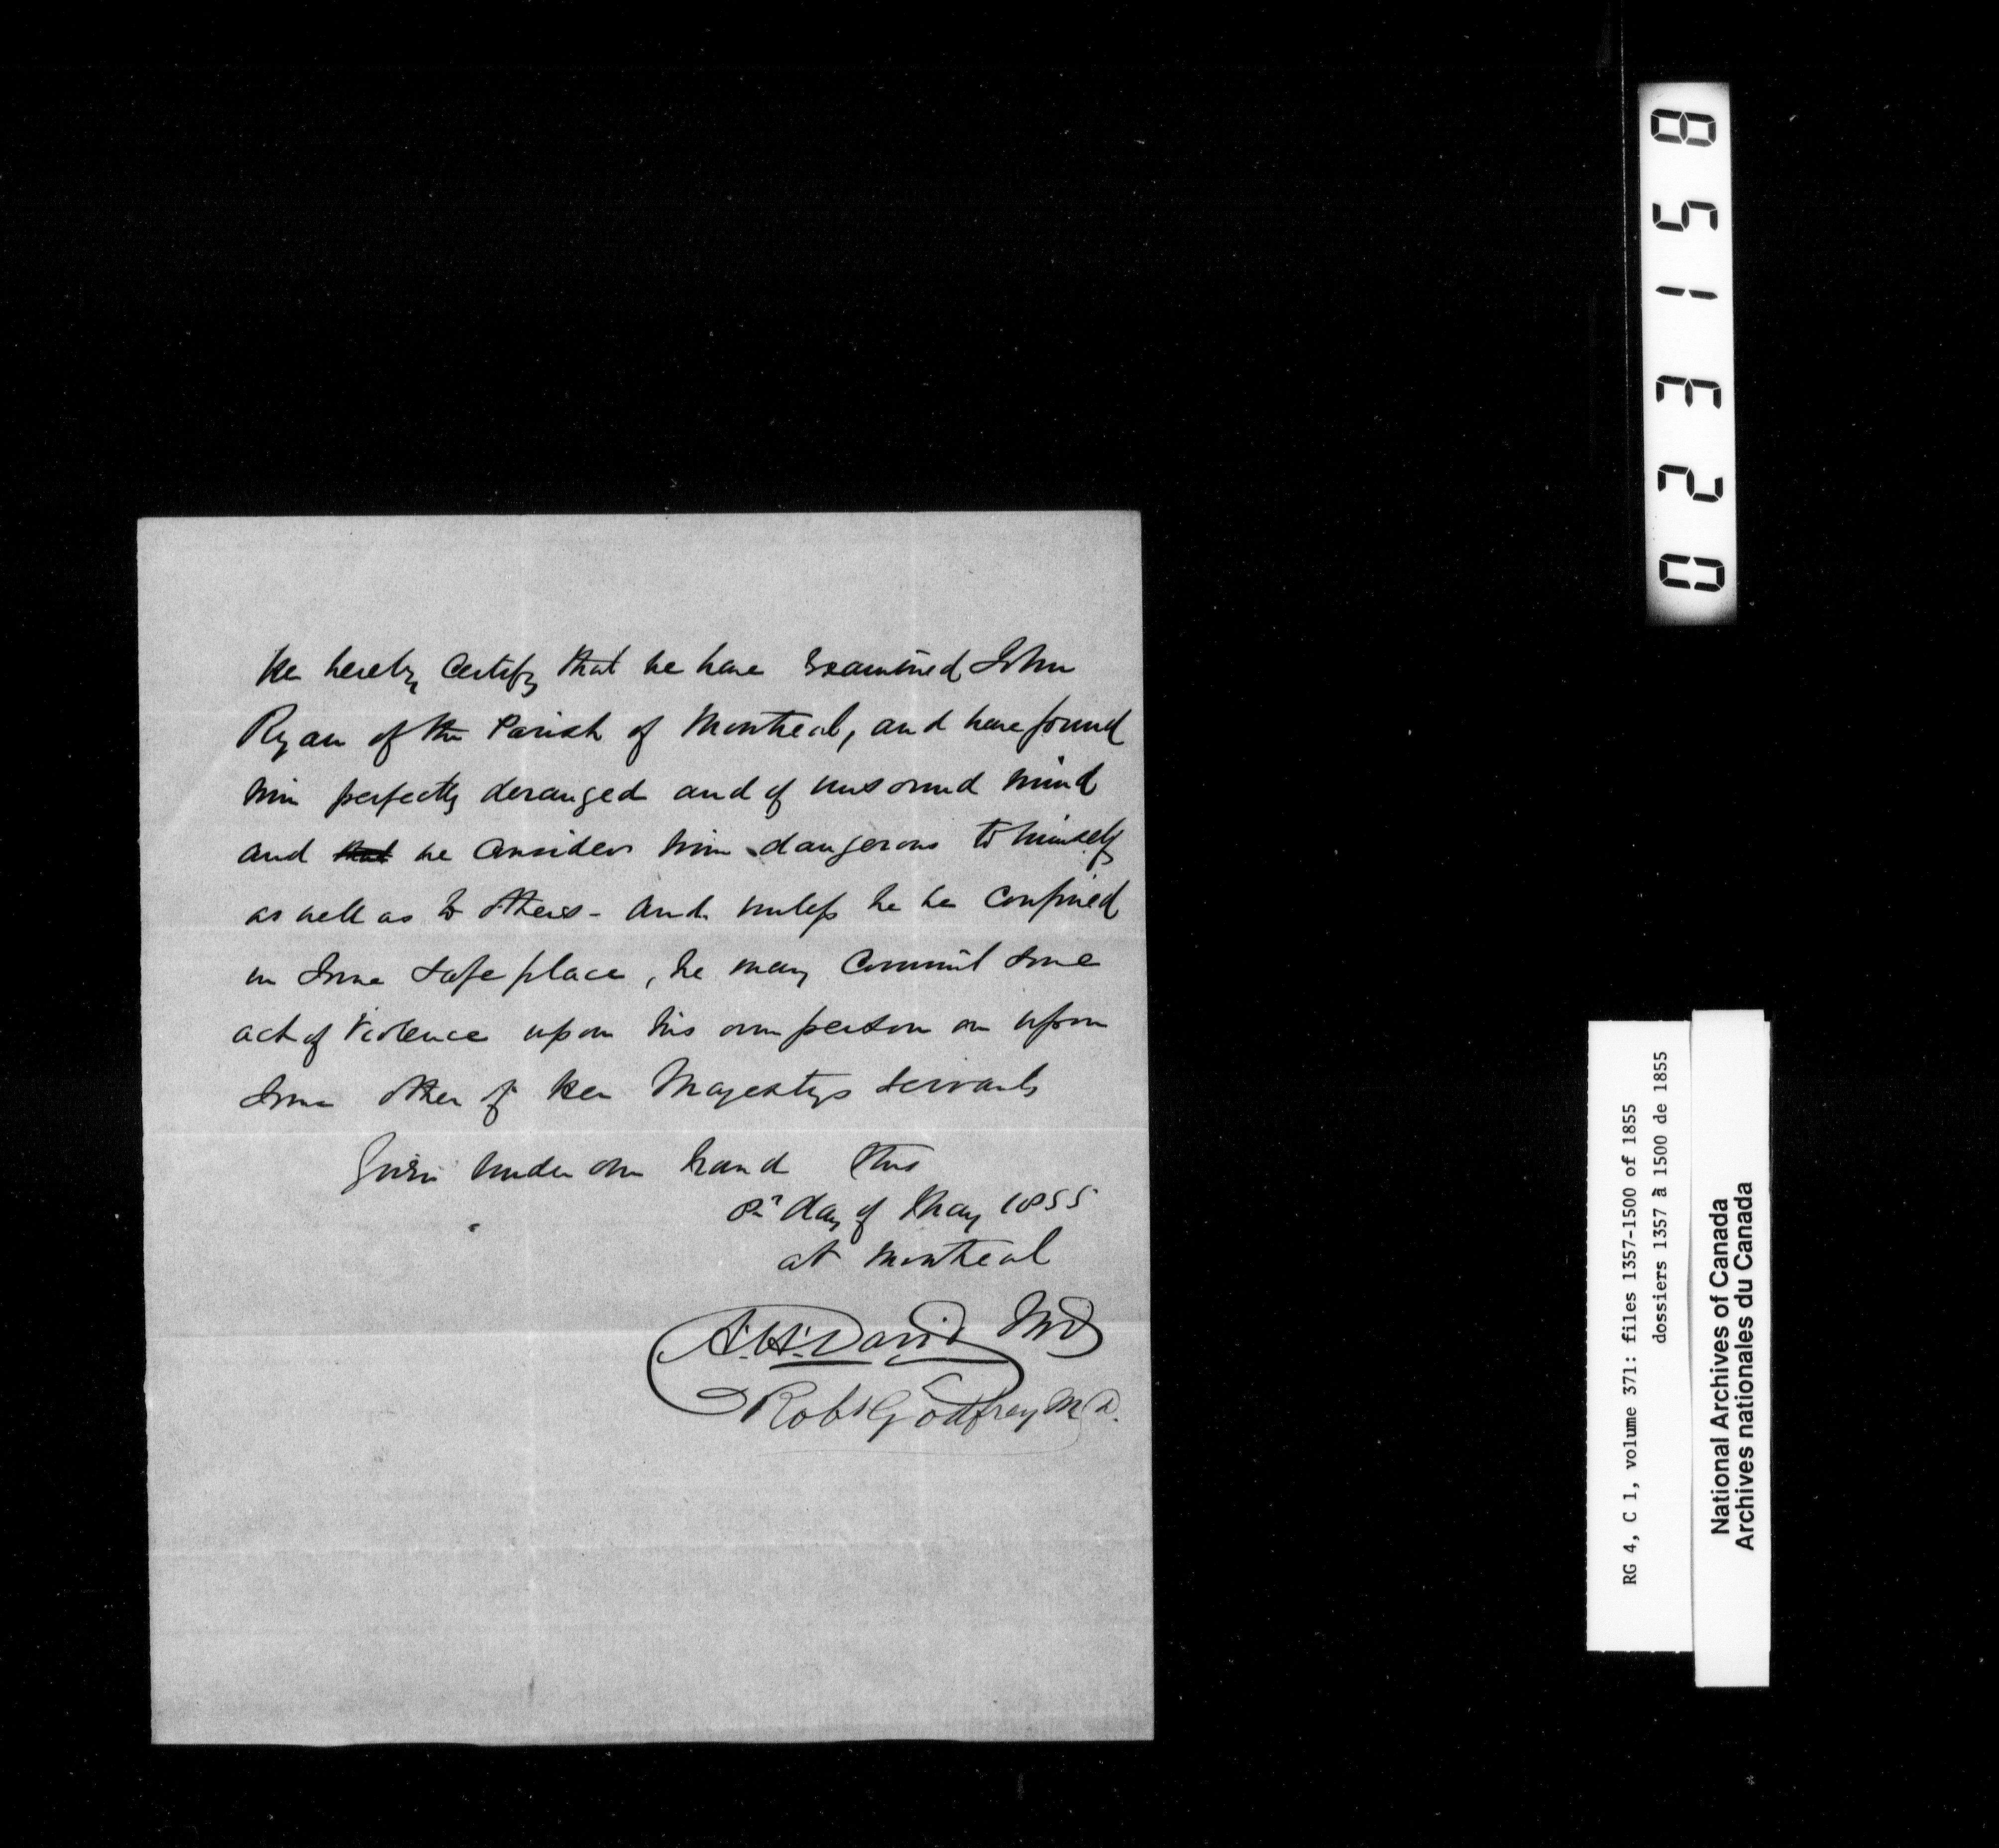 We hereby Certify that we have Examined John
Ryan of the Parish of Montreal, and have found
him perfectly deranged and of unsound mind
and that we consider him dangerous to himself
as well as to others - and unless he be Confined
in some safe place, he may Commit some
act of Violence upon his own person or upon
some other of Her Majestys servants
Given under our hand this
day of May 1855
at Montreal
A. H. David MD
Robt Godfrey M D.
023158
RG 4, C 1, volume 371: files 1357-1500 of 1855
dossiers 1357 à 1500 de 1855
National Archives of Canada
Archives nationales du Canada